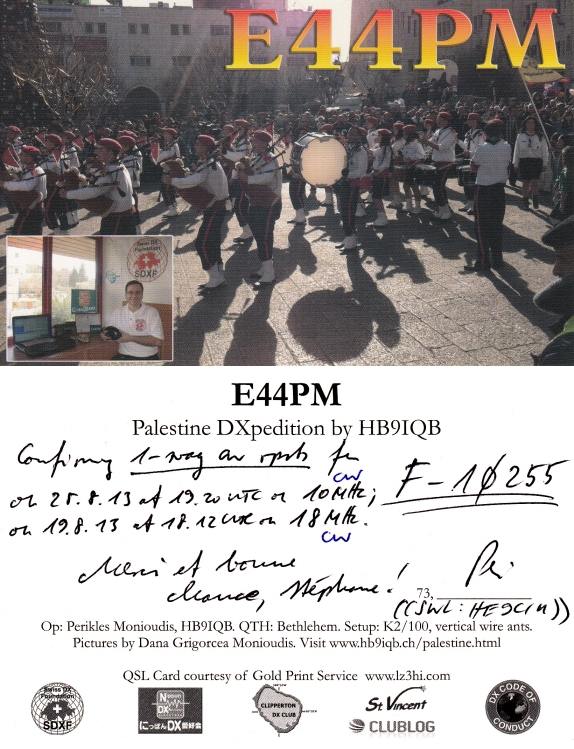 E44PM
Swiss DX
Foundation
SDXF
E44PM
Palestine DXpedition by HB9IQB
Confirming 1-way cw rprts fm
F-1Ø255
on 25.8.13 at 19.20 UTC on 10 MHz;
cw
on 19.8.13 at 18.12 UTC on 18 MHz.
cw
Merci et bonne
chance, Stéphane!
73,
Peri
((SWL: HE9CIM))
Op: Perikles Monioudis, HB9IQB. QTH: Bethlehem. Setup: K2/100, vertical wire ants.
Pictures by Dana Grigorcea Monioudis. Visit www.hb9iqb.ch/palestine.html
QSL Card courtesy of Gold Print Service www.lz3hi.com
Swiss DX
Foundation
SDXF
NIPPON
DX
にっぽんDX愛好会
CLIPPERTON
DX CLUB
St. Vincent
CLUBLOG
DX CODE OF
CONDUCT